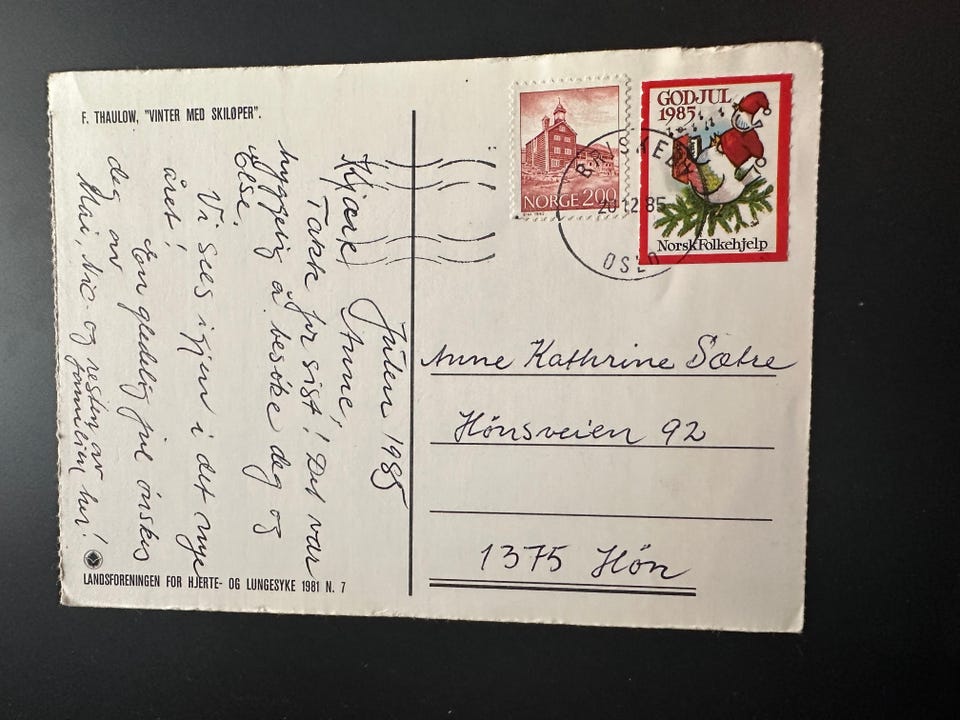 F. THAULOW, "VINTER MED SKILØPER".
Julen 1985
Kjære Anne,
Takk for sist! Det var
hyggelig å besøke deg og
Else.
Vi sees igjen i det nye
året!
En gledelig jul ønskes
deg av
Mai, Nic. og resten av
familien her!
LANDSFORENINGEN FOR HJERTE- OG LUNGESYKE 1981 N. 7
NORGE 200
BRISKEBY
12.85
OSLO
GOD JUL
1985
Norsk Folkehjelp
Anne Kathrine Sætre
Hønsveien 92
1375 Høn